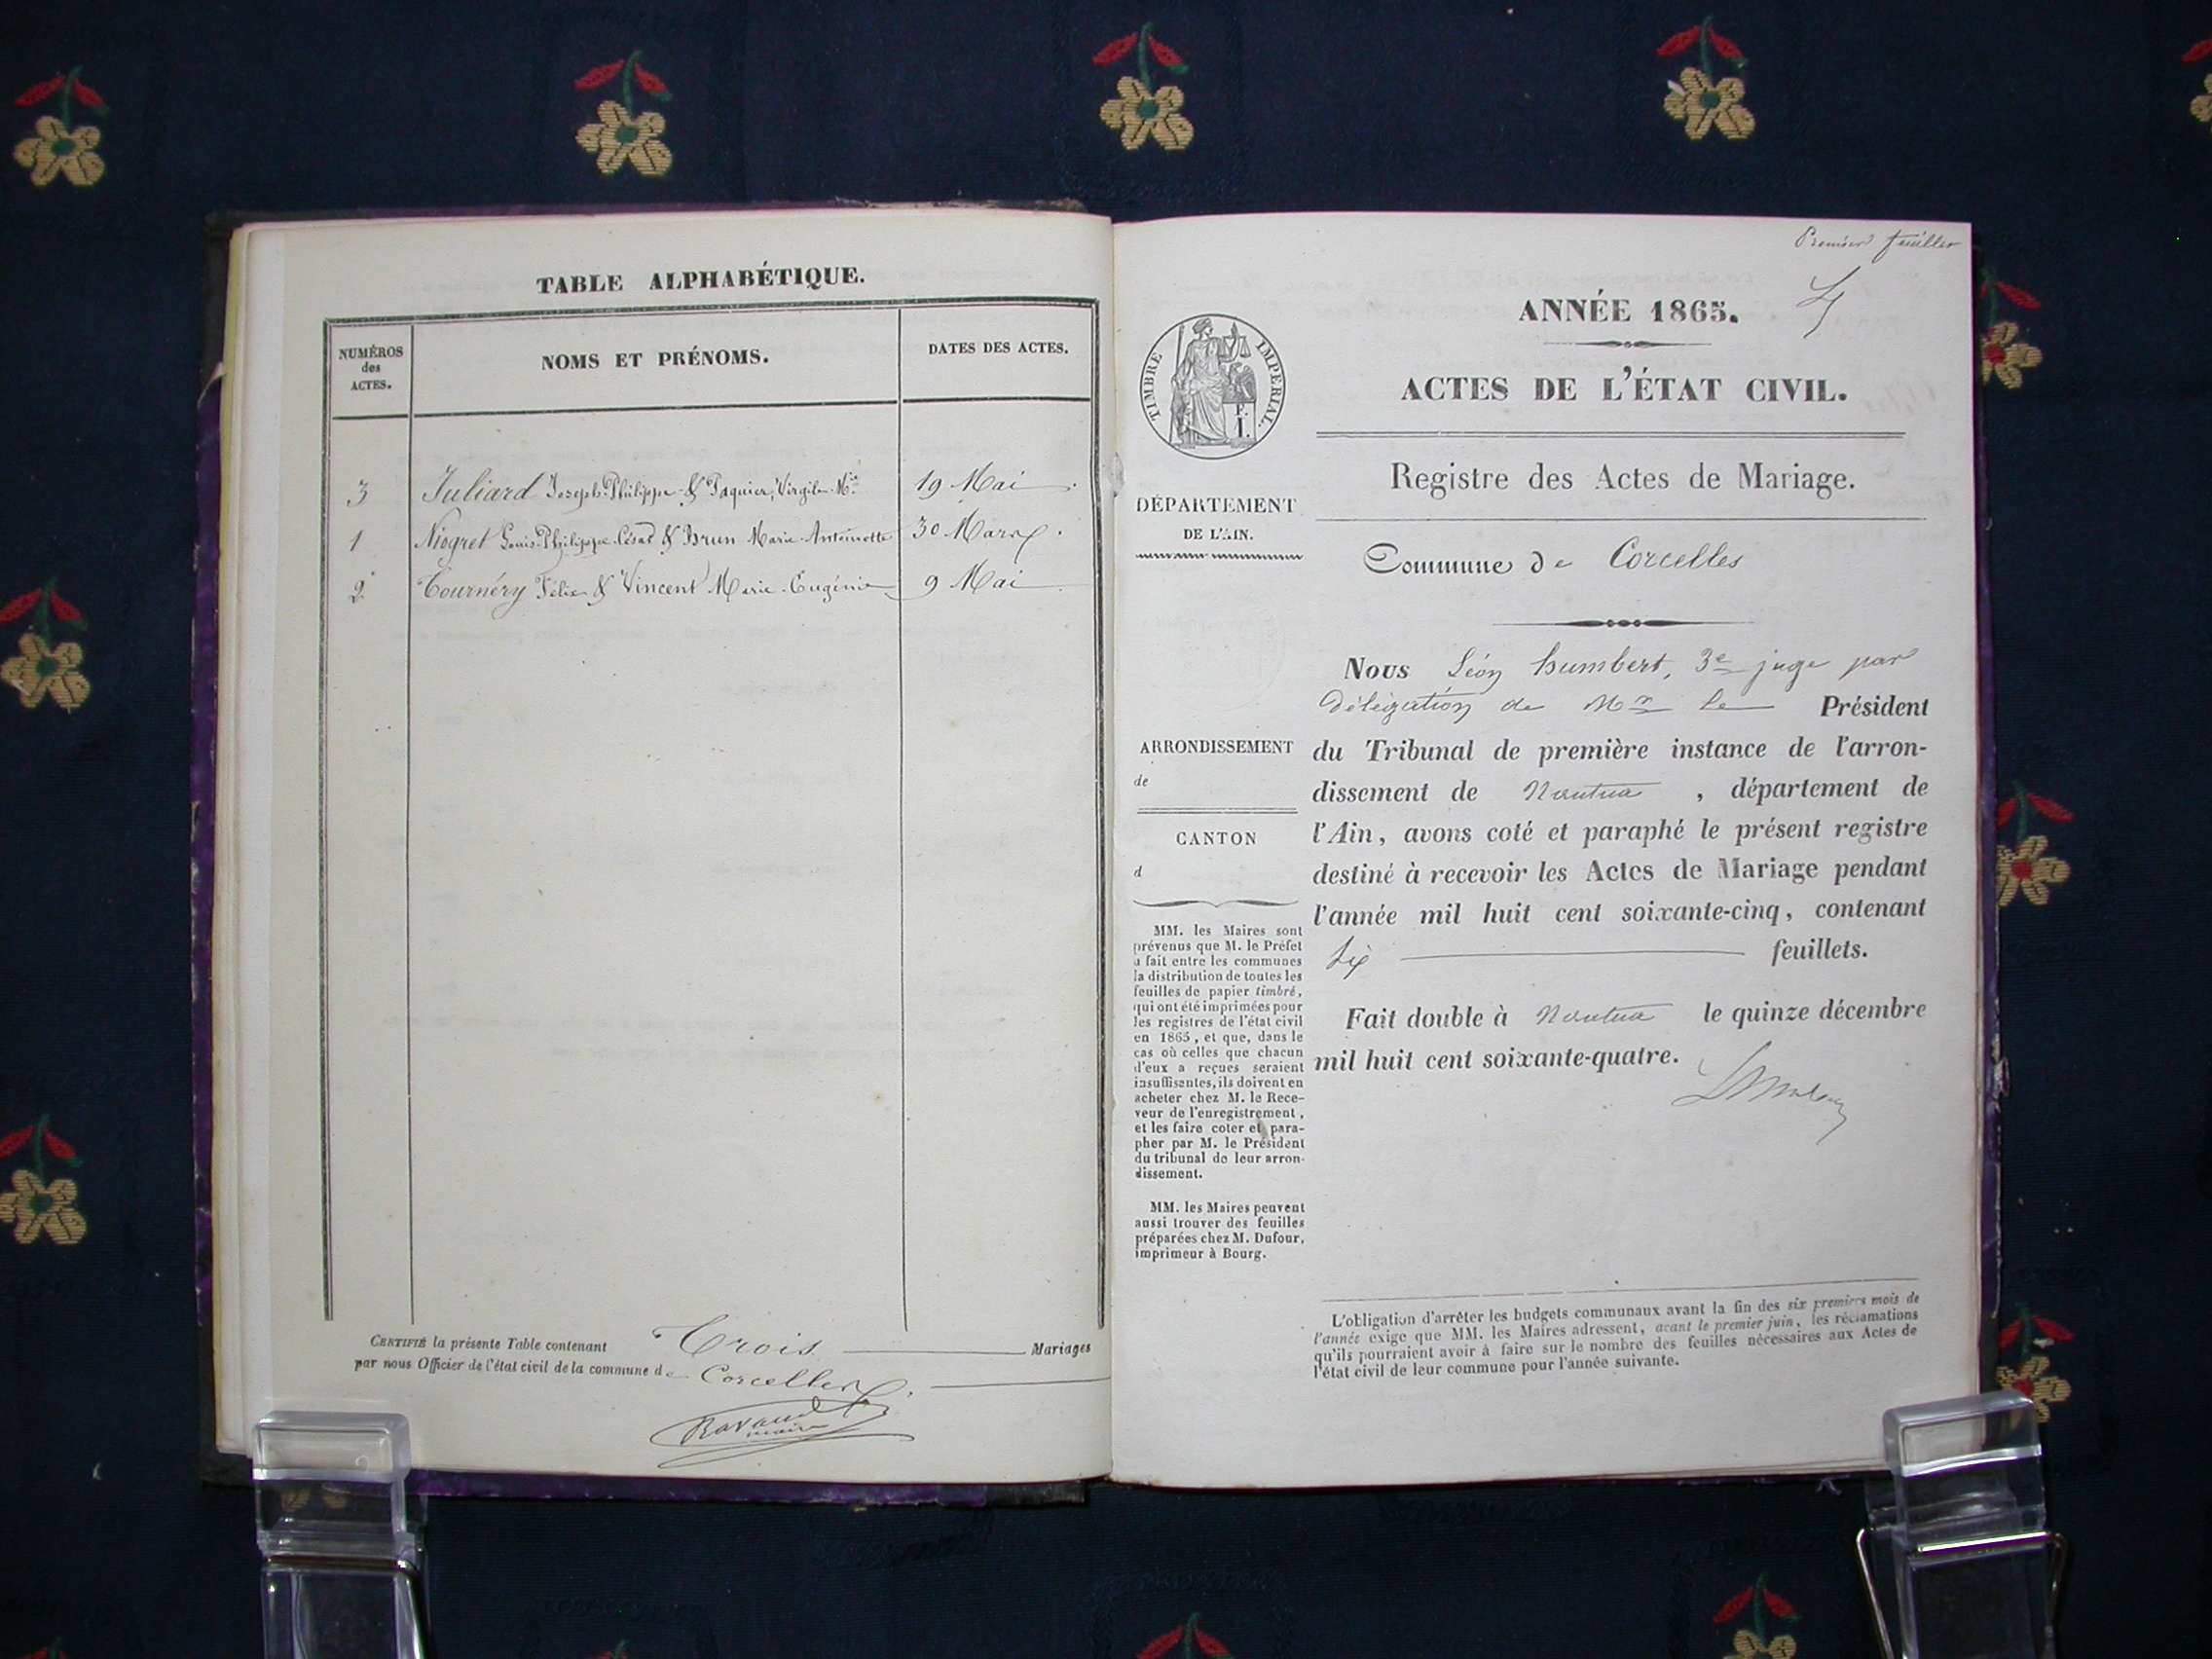 TABLE ALPHABÉTIQUE.
NUMÉROS
des
ACTES.
NOMS ET PRÉNOMS.
DATES DES ACTES.
3 Juliard Joseph-Philippe & Paquier, Virgile Mie 19 Mai
1 Niogret Louis-Philippe-César & Brun Marie-Antoinette 30 Mars
2 Tournéry Félix & Vincent Marie-Eugénie 9 Mai
CERTIFIÉ la présente Table contenant Trois Mariages
par nous Officier de l'état civil de la commune de Corcelles,
Ravaud
maire
Premier feuillet
ANNÉE 1865.
ACTES DE L'ÉTAT CIVIL.
Registre des Actes de Mariage.
Commune de Corcelles
TIMBRE IMPÉRIAL.
DÉPARTEMENT
DE L'AIN.
ARRONDISSEMENT
de
CANTON
d
MM. les Maires sont
prévenus que M. le Préfet
a fait entre les communes
la distribution de toutes les
feuilles de papier timbré,
qui ont été imprimées pour
les registres de l'état civil
en 1865, et que, dans le
cas où celles que chacun
d'eux a reçues seraient
insuffisantes, ils doivent en
acheter chez M. le Rece-
veur de l'enregistrement,
et les faire coter et para-
pher par M. le Président
du tribunal de leur arron-
dissement.
MM. les Maires peuvent
aussi trouver des feuilles
préparées chez M. Dufour,
imprimeur à Bourg.
Nous Léon humbert, 3e juge par
délégation de Mr le Président
du Tribunal de première instance de l'arron-
dissement de Nantua, département de
l'Ain, avons coté et paraphé le présent registre
destiné à recevoir les Actes de Mariage pendant
l'année mil huit cent soixante-cinq, contenant
Six feuillets.
Fait double à Nantua le quinze décembre
mil huit cent soixante-quatre.
L'obligation d'arrêter les budgets communaux avant la fin des six premiers mois de
l'année exige que MM. les Maires adressent, avant le premier juin, les réclamations
qu'ils pourraient avoir à faire sur le nombre des feuilles nécessaires aux Actes de
l'état civil de leur commune pour l'année suivante.